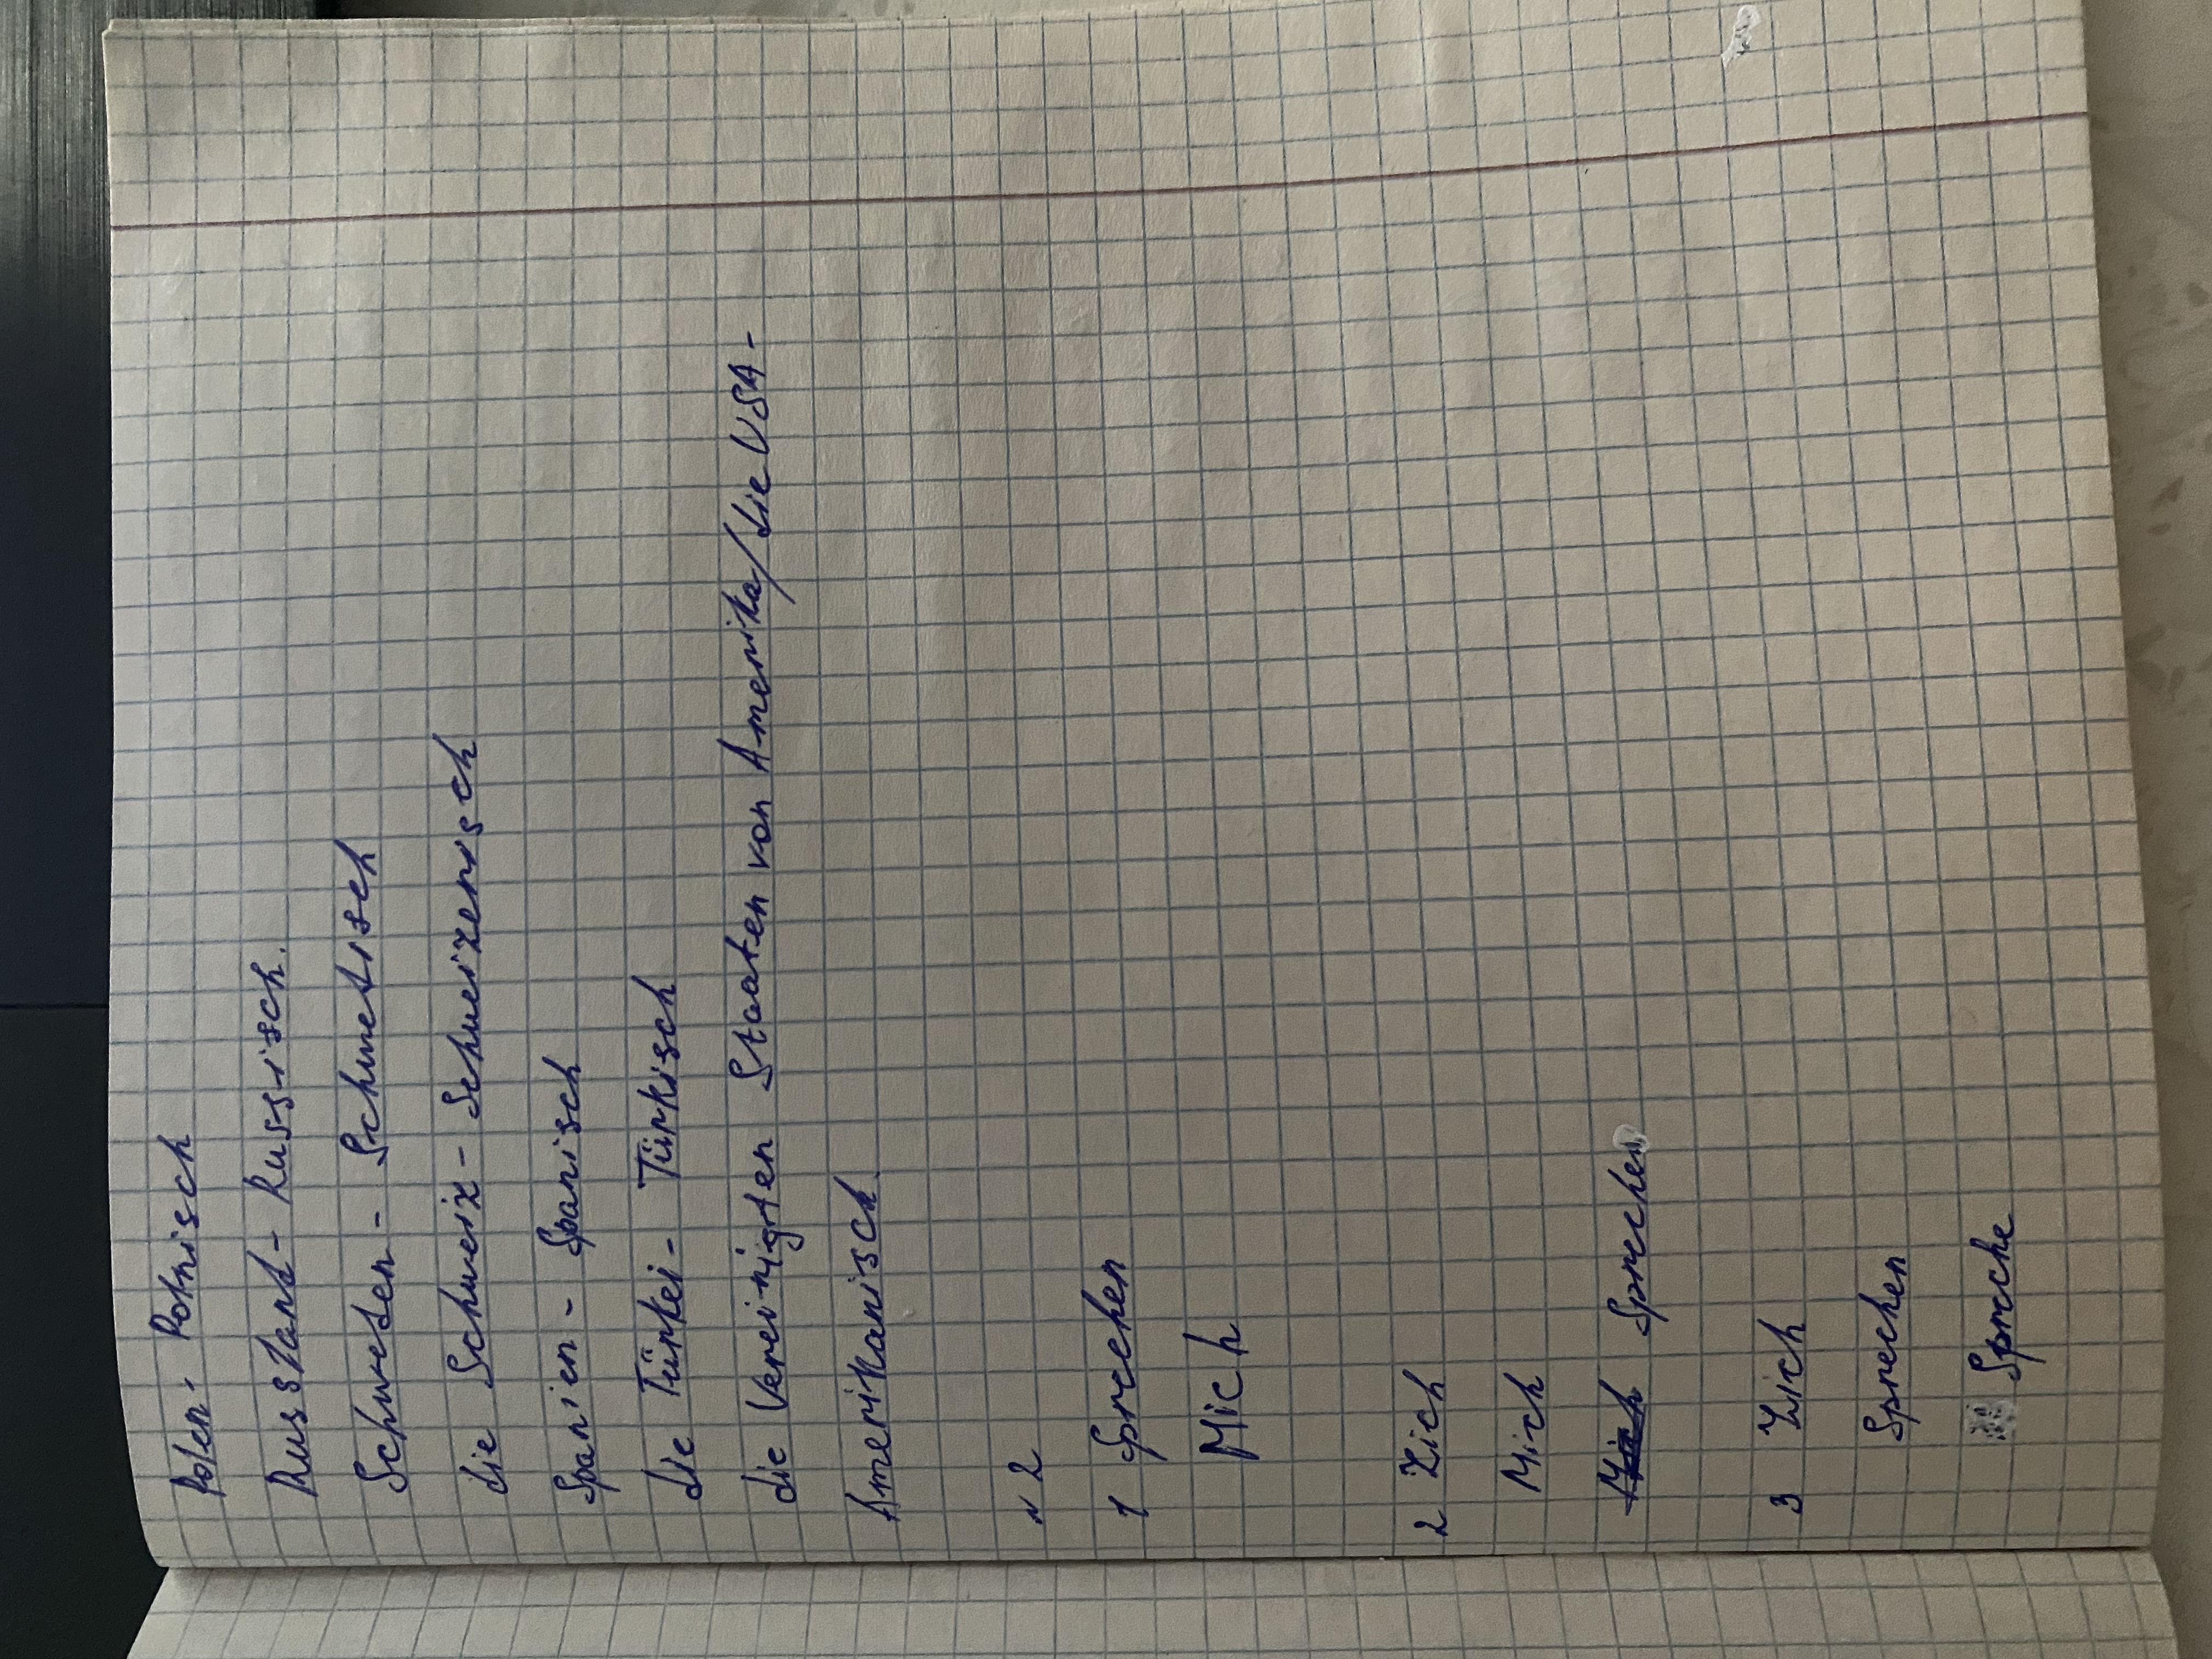 Polen - Polnisch
Russland - Russisch.
Schweden - Schwedisch
die Schweiz - Schweizerisch
Spanien - Spanisch
die Türkei - Türkisch
die Vereinigten Staaten von Amerika/die USA -
Amerikanisch.
№ 2
1 Sprechen
Mich
2 Dich
Mich
Sprechen
3 Dich
Sprechen
Spreche